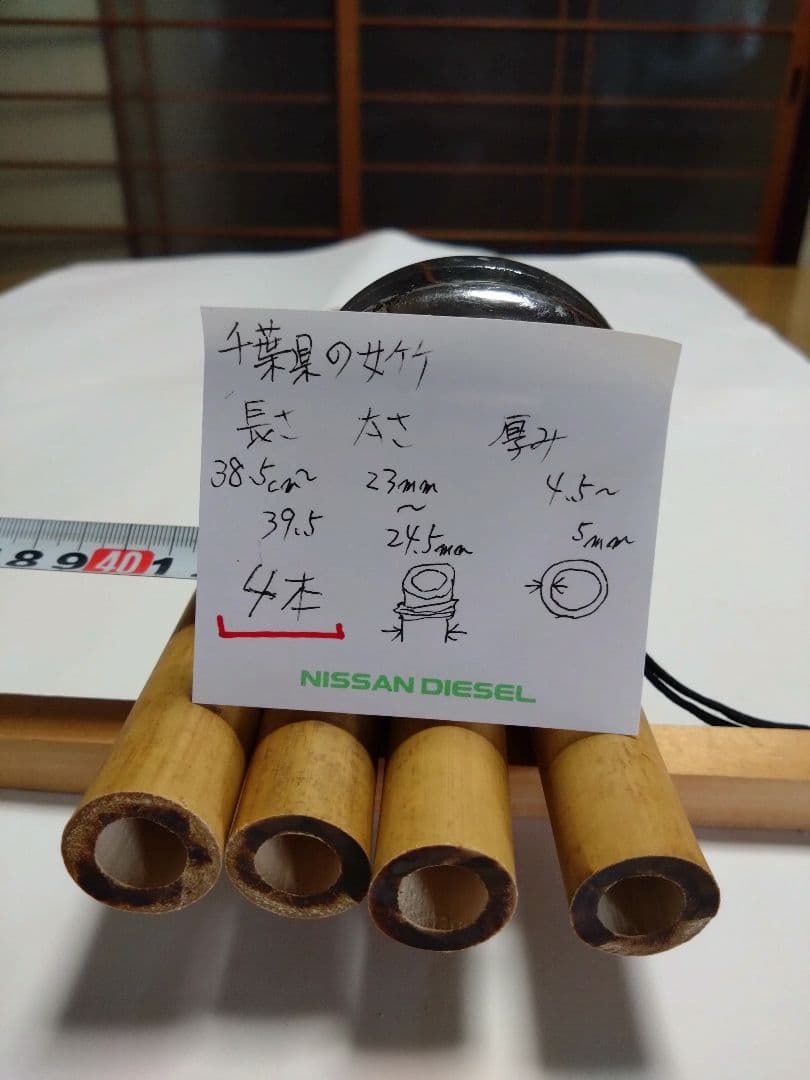 千葉県の女竹
長さ 太さ 厚み
38.5cm〜 23mm 4.5〜
39.5 〜 5mm
24.5mm
4本
NISSAN DIESEL
8 9 40 1